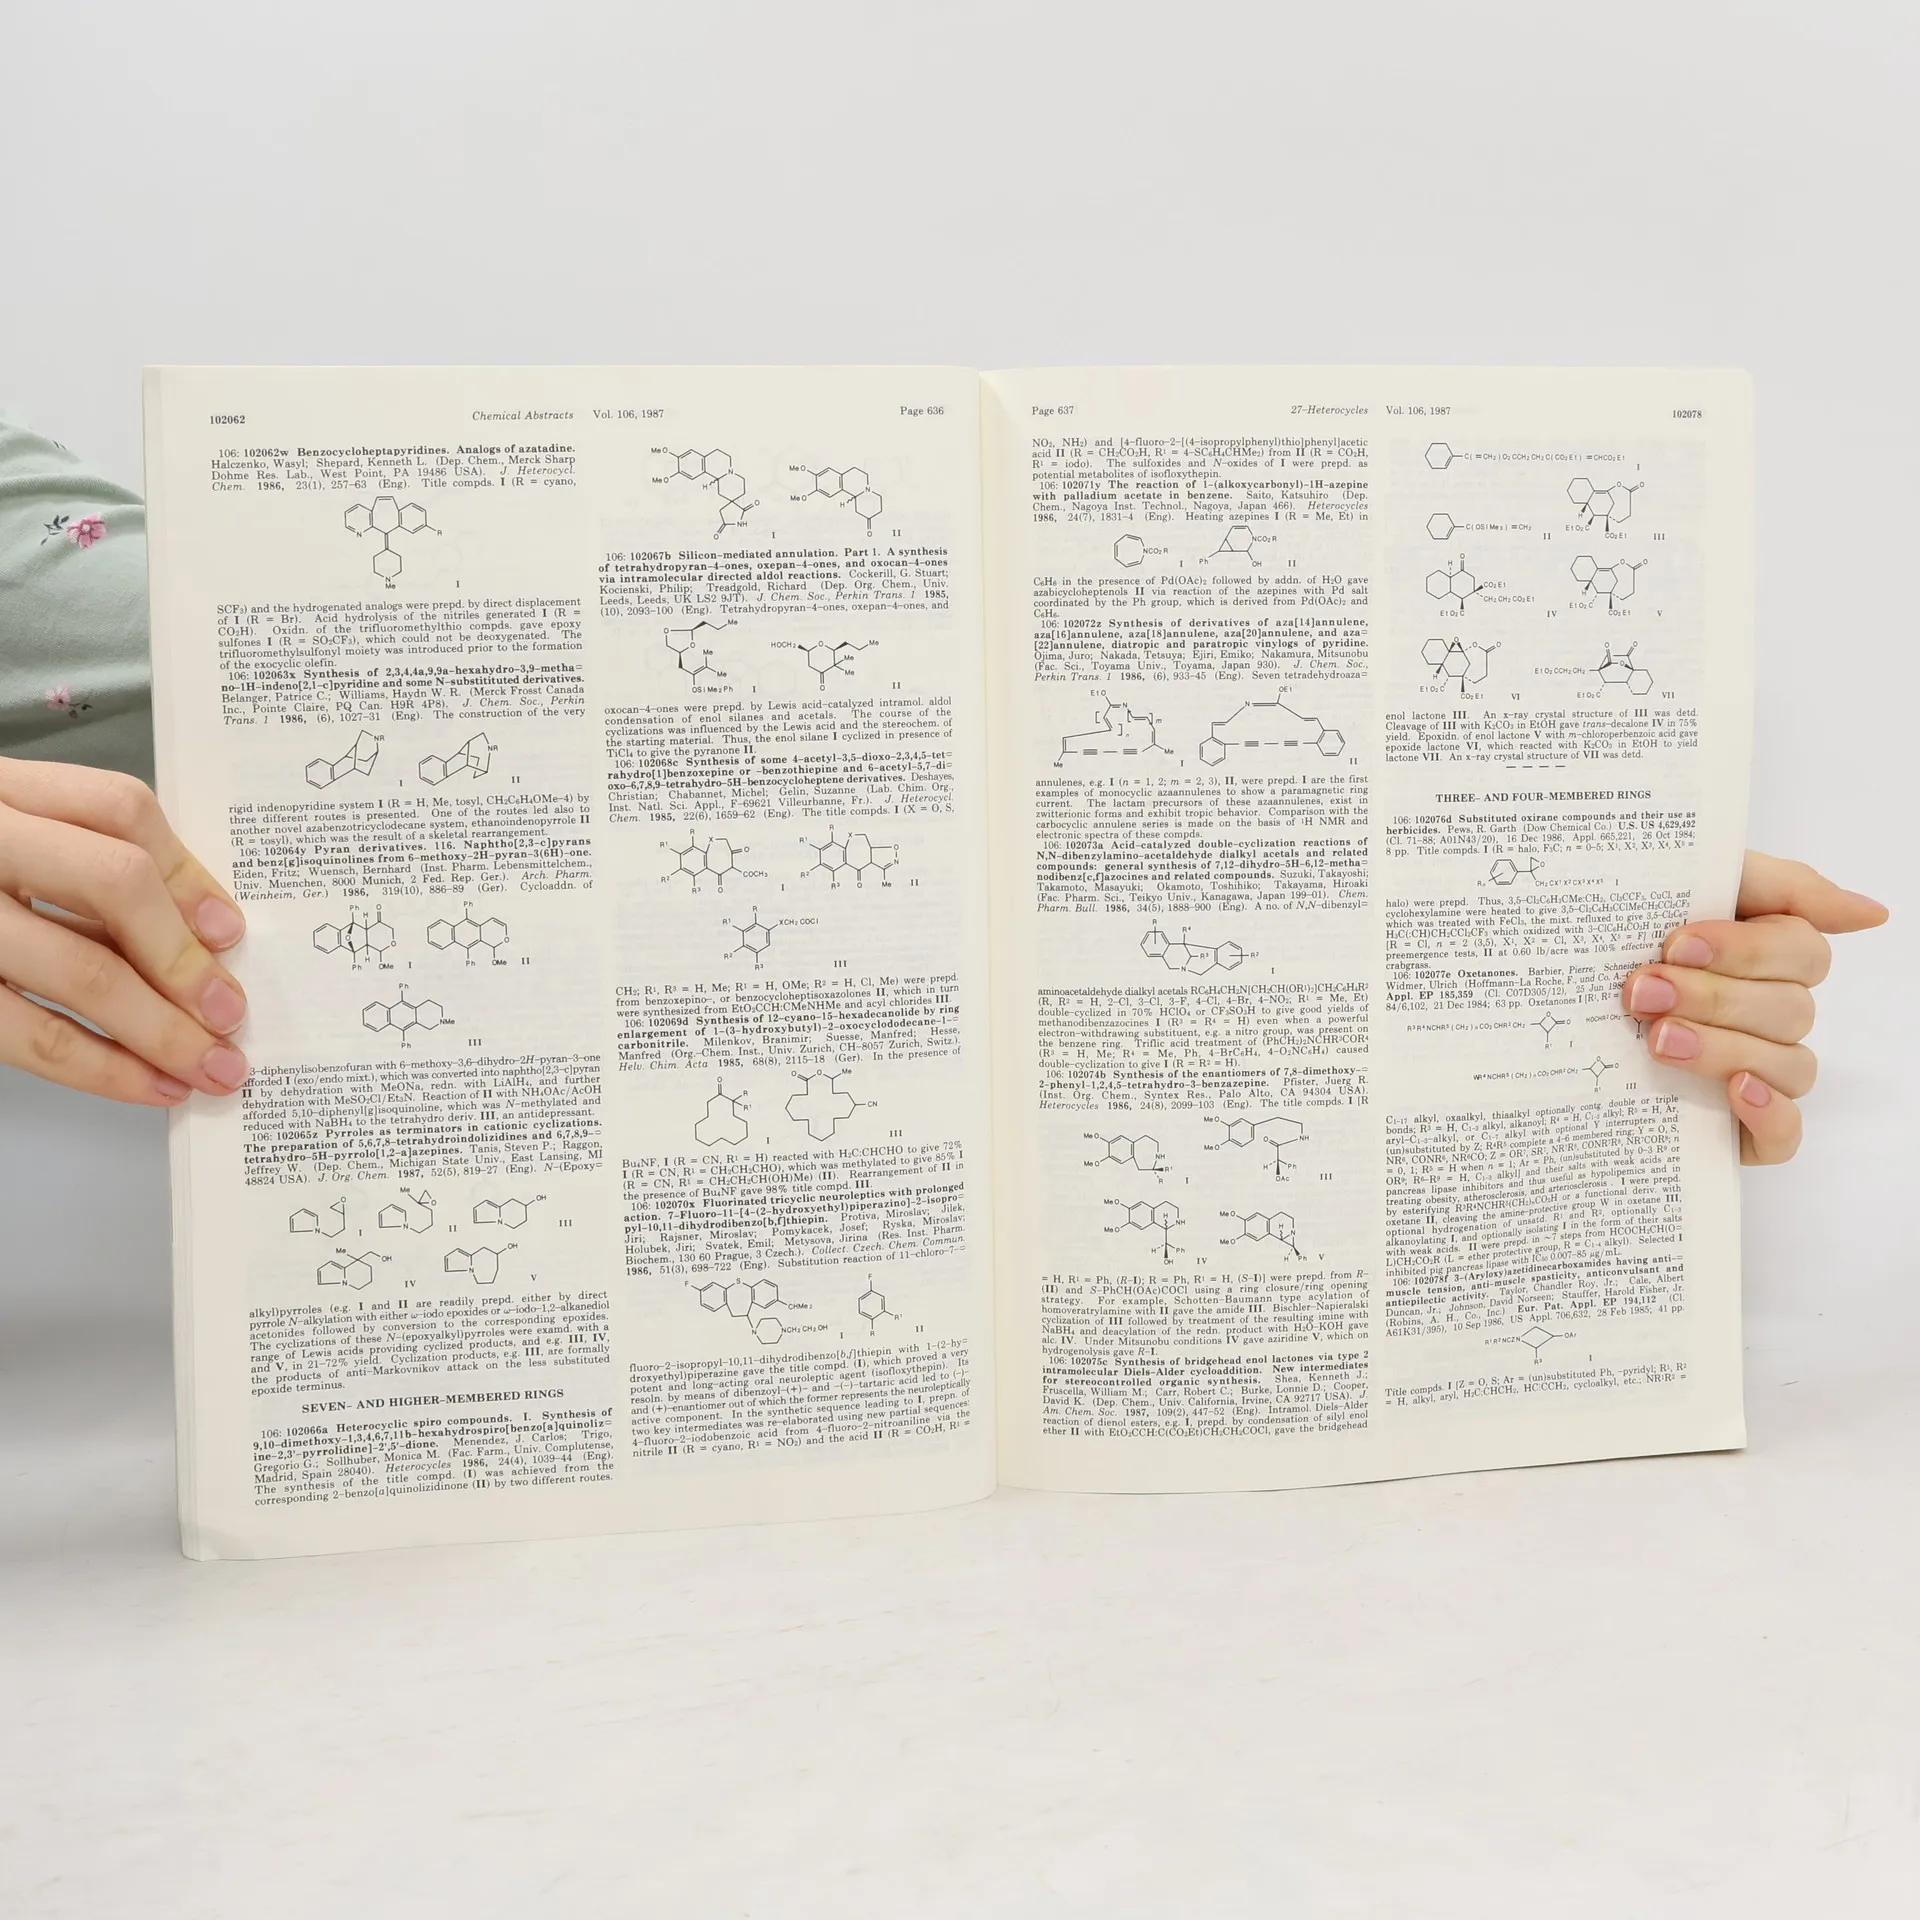 102062
Chemical Abstracts Vol. 106, 1987
Page 636
106: 102062w Benzocycloheptapyridines. Analogs of azatadine.
Halczenko, Wasyl; Shepard, Kenneth L. (Dep. Chem., Merck Sharp
Dohme Res. Lab., West Point, PA 19486 USA). J. Heterocycl.
Chem. 1986, 23(1), 257–63 (Eng). Title compds. I (R = cyano,
N
R
N
Me
I
SCF3) and the hydrogenated analogs were prepd. by direct displacement
of I (R = Br). Acid hydrolysis of the nitriles generated I (R =
CO2H). Oxidn. of the trifluoromethylthio compds. gave epoxy
sulfones I (R = SO2CF3), which could not be deoxygenated. The
trifluoromethylsulfonyl moiety was introduced prior to the formation
of the exocyclic olefin.
106: 102063x Synthesis of 2,3,4,4a,9,9a-hexahydro-3,9-metha=
no-1H-indeno[2,1-c]pyridine and some N-substitituted derivatives.
Belanger, Patrice C.; Williams, Haydn W. R. (Merck Frosst Canada
Inc., Pointe Claire, PQ Can. H9R 4P8). J. Chem. Soc., Perkin
Trans. 1 1986, (6), 1027–31 (Eng). The construction of the very
NR
I
NR
II
rigid indenopyridine system I (R = H, Me, tosyl, CH2C6H4OMe-4) by
three different routes is presented. One of the routes led also to
another novel azabenzotricyclodecane system, ethanoindenopyrrole II
(R = tosyl), which was the result of a skeletal rearrangement.
106: 102064y Pyran derivatives. 116. Naphtho[2,3-c]pyrans
and benz[g]isoquinolines from 6-methoxy-2H-pyran-3(6H)-one.
Eiden, Fritz; Wuensch, Bernhard (Inst. Pharm. Lebensmittelchem.,
Univ. Muenchen, 8000 Munich, 2 Fed. Rep. Ger.). Arch. Pharm.
(Weinheim, Ger.) 1986, 319(10), 886–89 (Ger). Cycloaddn. of
Ph H O
O O
Ph H OMe I
Ph
O
Ph OMe II
Ph
NMe
Ph III
3-diphenylisobenzofuran with 6-methoxy-3,6-dihydro-2H-pyran-3-one
afforded I (exo/endo mixt.), which was converted into naphtho[2,3-c]pyran
II by dehydration with MeONa, redn. with LiAlH4, and further
dehydration with MeSO2Cl/Et3N. Reaction of II with NH4OAc/AcOH
afforded 5,10-diphenyl[g]isoquinoline, which was N-methylated and
reduced with NaBH4 to the tetrahydro deriv. III, an antidepressant.
106: 102065z Pyrroles as terminators in cationic cyclizations.
The preparation of 5,6,7,8-tetrahydroindolizidines and 6,7,8,9-=
tetrahydro-5H-pyrrolo[1,2-a]azepines. Tanis, Steven P.; Raggon,
Jeffrey W. (Dep. Chem., Michigan State Univ., East Lansing, MI
48824 USA). J. Org. Chem. 1987, 52(5), 819–27 (Eng). N-(Epoxy=
O
N
I
Me
O
N
II
OH
N
III
Me
OH
N
IV
OH
N
V
alkyl)pyrroles (e.g. I and II are readily prepd. either by direct
pyrrole N-alkylation with either ω-iodo epoxides or ω-iodo-1,2-alkanediol
acetonides followed by conversion to the corresponding epoxides.
The cyclizations of these N-(epoxyalkyl)pyrroles were examd. with a
range of Lewis acids providing cyclized products, and e.g. III, IV,
and V, in 21–72% yield. Cyclization products, e.g. III, are formally
the products of anti-Markovnikov attack on the less substituted
epoxide terminus.
SEVEN- AND HIGHER-MEMBERED RINGS
106: 102066a Heterocyclic spiro compounds. I. Synthesis of
9,10-dimethoxy-1,3,4,6,7,11b-hexahydrospiro[benzo[a]quinoliz=
ine-2,3'-pyrrolidine]-2',5'-dione. Menendez, J. Carlos; Trigo,
Gregorio G.; Sollhuber, Monica M. (Fac. Farm., Univ. Complutense,
Madrid, Spain 28040). Heterocycles 1986, 24(4), 1039–44 (Eng).
The synthesis of the title compd. (I) was achieved from the
corresponding 2-benzo[a]quinolizidinone (II) by two different routes.
MeO
MeO
N
H
O
NH
O
I
MeO
MeO
N
H
O
II
106: 102067b Silicon-mediated annulation. Part 1. A synthesis
of tetrahydropyran-4-ones, oxepan-4-ones, and oxocan-4-ones
via intramolecular directed aldol reactions. Cockerill, G. Stuart;
Kocienski, Philip; Treadgold, Richard (Dep. Org. Chem., Univ.
Leeds, Leeds, UK LS2 9JT). J. Chem. Soc., Perkin Trans. 1 1985,
(10), 2093–100 (Eng). Tetrahydropyran-4-ones, oxepan-4-ones, and
O
O
Me
Me
Me
OSiMe2Ph I
HOCH2 O Me
Me
Me
O
II
oxocan-4-ones were prepd. by Lewis acid-catalyzed intramol. aldol
condensation of enol silanes and acetals. The course of the
cyclizations was influenced by the Lewis acid and the stereochem. of
the starting material. Thus, the enol silane I cyclized in presence of
TiCl4 to give the pyranone II.
106: 102068c Synthesis of some 4-acetyl-3,5-dioxo-2,3,4,5-tet=
rahydro[1]benzoxepine or -benzothiepine and 6-acetyl-5,7-di=
oxo-6,7,8,9-tetrahydro-5H-benzocycloheptene derivatives. Deshayes,
Christian; Chabannet, Michel; Gelin, Suzanne (Lab. Chim. Org.,
Inst. Natl. Sci. Appl., F-69621 Villeurbanne, Fr.). J. Heterocycl.
Chem. 1985, 22(6), 1659–62 (Eng). The title compds. I (X = O, S,
R
R1 X O
R2 COCH3
R3 O I
R
R1 X O
N
R2
R3 O Me II
R
R1 XCH2COCl
R2
R3 III
CH2; R1, R3 = H, Me; R1 = H, OMe; R2 = H, Cl, Me) were prepd.
from benzoxepino-, or benzocycloheptisoxazolones II, which in turn
were synthesized from EtO2CCH:CMeNHMe and acyl chlorides III.
106: 102069d Synthesis of 12-cyano-15-hexadecanolide by ring
enlargement of 1-(3-hydroxybutyl)-2-oxocyclododecane-1-=
carbonitrile. Milenkov, Branimir; Suesse, Manfred; Hesse,
Manfred (Org.-Chem. Inst., Univ. Zurich, CH-8057 Zurich, Switz.).
Helv. Chim. Acta 1985, 68(8), 2115–18 (Ger). In the presence of
O
R
R1
I
O O Me
CN
III
Bu4NF, I (R = CN, R1 = H) reacted with H2C:CHCHO to give 72%
I (R = CN, R1 = CH2CH2CHO), which was methylated to give 85% I
(R = CN, R1 = CH2CH2CH(OH)Me) (II). Rearrangement of II in
the presence of Bu4NF gave 98% title compd. III.
106: 102070x Fluorinated tricyclic neuroleptics with prolonged
action. 7-Fluoro-11-[4-(2-hydroxyethyl)piperazino]-2-isopro=
pyl-10,11-dihydrodibenzo[b,f]thiepin. Protiva, Miroslav; Jilek,
Jiri; Rajsner, Miroslav; Pomykacek, Josef; Ryska, Miroslav;
Holubek, Jiri; Svatek, Emil; Metysova, Jirina (Res. Inst. Pharm.
Biochem., 130 60 Prague, 3 Czech.). Collect. Czech. Chem. Commun.
1986, 51(3), 698–722 (Eng). Substitution reaction of 11-chloro-7-=
F S
CHMe2
N
NCH2CH2OH I
F
R1
R
II
fluoro-2-isopropyl-10,11-dihydrodibenzo[b,f]thiepin with 1-(2-hy=
droxyethyl)piperazine gave the title compd. (I), which proved a very
potent and long-acting oral neuroleptic agent (isofloxythepin). Its
resoln. by means of dibenzoyl-(+)- and -(-)-tartaric acid led to (-)-
and (+)-enantiomer out of which the former represents the neuroleptically
active component. In the synthetic sequence leading to I, prepn. of
two key intermediates was re-elaborated using new partial sequences:
4-fluoro-2-iodobenzoic acid from 4-fluoro-2-nitroaniline via the
nitrile II (R = cyano, R1 = NO2) and the acid II (R = CO2H, R1 =
Page 637
27-Heterocycles Vol. 106, 1987
102078
NO2, NH2) and [4-fluoro-2-[(4-isopropylphenyl)thio]phenyl]acetic
acid II (R = CH2CO2H, R1 = 4-SC6H4CHMe2) from II (R = CO2H,
R1 = iodo). The sulfoxides and N-oxides of I were prepd. as
potential metabolites of isofloxythepin.
106: 102071y The reaction of 1-(alkoxycarbonyl)-1H-azepine
with palladium acetate in benzene. Saito, Katsuhiro (Dep.
Chem., Nagoya Inst. Technol., Nagoya, Japan 466). Heterocycles
1986, 24(7), 1831–4 (Eng). Heating azepines I (R = Me, Et) in
NCO2R
I
NCO2R
Ph OH II
C6H6 in the presence of Pd(OAc)2 followed by addn. of H2O gave
azabicycloheptenols II via reaction of the azepines with Pd salt
coordinated by the Ph group, which is derived from Pd(OAc)2 and
C6H6.
106: 102072z Synthesis of derivatives of aza[14]annulene,
aza[16]annulene, aza[18]annulene, aza[20]annulene, and aza=
[22]annulene, diatropic and paratropic vinylogs of pyridine.
Ojima, Juro; Nakada, Tetsuya; Ejiri, Emiko; Nakamura, Mitsunobu
(Fac. Sci., Toyama Univ., Toyama, Japan 930). J. Chem. Soc.,
Perkin Trans. 1 1986, (6), 933–45 (Eng). Seven tetradehydroaza=
EtO
N
m
n
Me Me
I
OEt
N
II
annulenes, e.g. I (n = 1, 2; m = 2, 3), II, were prepd. I are the first
examples of monocyclic azaannulenes to show a paramagnetic ring
current. The lactam precursors of these azaannulenes, exist in
zwitterionic forms and exhibit tropic behavior. Comparison with the
carbocyclic annulene series is made on the basis of 1H NMR and
electronic spectra of these compds.
106: 102073a Acid-catalyzed double-cyclization reactions of
N,N-dibenzylamino-acetaldehyde dialkyl acetals and related
compounds: general synthesis of 7,12-dihydro-5H-6,12-metha=
nodibenz[c,f]azocines and related compounds. Suzuki, Takayoshi;
Takamoto, Masayuki; Okamoto, Toshihiko; Takayama, Hiroaki
(Fac. Pharm. Sci., Teikyo Univ., Kanagawa, Japan 199-01). Chem.
Pharm. Bull. 1986, 34(5), 1888–900 (Eng). A no. of N,N-dibenzyl=
R
R4
R3 R2
N
I
aminoacetaldehyde dialkyl acetals RC6H4CH2N[CH2CH(OR1)2]CH2C6H4R2
(R, R2 = H, 2-Cl, 3-Cl, 3-F, 4-Cl, 4-Br, 4-NO2; R1 = Me, Et)
double-cyclized in 70% HClO4 or CF3SO3H to give good yields of
methanodibenzazocines I (R3 = R4 = H) even when a powerful
electron-withdrawing substituent, e.g. a nitro group, was present on
the benzene ring. Triflic acid treatment of (PhCH2)2NCHR3COR4
(R3 = H, Me; R4 = Me, Ph, 4-BrC6H4, 4-O2NC6H4) caused
double-cyclization to give I (R = R2 = H).
106: 102074b Synthesis of the enantiomers of 7,8-dimethoxy-=
2-phenyl-1,2,4,5-tetrahydro-3-benzazepine. Pfister, Juerg R.
(Inst. Org. Chem., Syntex Res., Palo Alto, CA 94304 USA).
Heterocycles 1986, 24(8), 2099–103 (Eng). The title compds. I [R
MeO
MeO
NH
R1
R I
MeO
MeO
NH
O
H Ph
OAc III
MeO
MeO
H
NH
H Ph
OH IV
MeO
MeO
N
H
H Ph V
= H, R1 = Ph, (R-I); R = Ph, R1 = H, (S-I)] were prepd. from R-
(II) and S-PhCH(OAc)COCl using a ring closure/ring opening
strategy. For example, Schotten-Baumann type acylation of
homoveratrylamine with II gave the amide III. Bischler-Napieralski
cyclization of III followed by treatment of the resulting imine with
NaBH4 and deacylation of the redn. product with H2O-KOH gave
alc. IV. Under Mitsunobu conditions IV gave aziridine V, which on
hydrogenolysis gave R-I.
106: 102075c Synthesis of bridgehead enol lactones via type 2
intramolecular Diels-Alder cycloaddition. New intermediates
for stereocontrolled organic synthesis. Shea, Kenneth J.;
Fruscella, William M.; Carr, Robert C.; Burke, Lonnie D.; Cooper,
David K. (Dep. Chem., Univ. California, Irvine, CA 92717 USA). J.
Am. Chem. Soc. 1987, 109(2), 447–52 (Eng). Intramol. Diels-Alder
reaction of dienol esters, e.g. I, prepd. by condensation of silyl enol
ether II with EtO2CCH:C(CO2Et)CH2CH2COCl, gave the bridgehead
C(=CH2)O2CCH2CH2C(CO2Et)=CHCO2Et
I
C(OSiMe3)=CH2
II
O O
H
EtO2C
CO2Et III
H O
CO2Et
CH2CH2CO2Et
EtO2C IV
O O
H
EtO2C
CO2Et V
O O O
H
EtO2C
CO2Et VI
O O
EtO2CCH2CH2 O
EtO2C
VII
enol lactone III. An x-ray crystal structure of III was detd.
Cleavage of III with K2CO3 in EtOH gave trans-decalone IV in 75%
yield. Epoxidn. of enol lactone V with m-chloroperbenzoic acid gave
epoxide lactone VI, which reacted with K2CO3 in EtOH to yield
lactone VII. An x-ray crystal structure of VII was detd.
THREE- AND FOUR-MEMBERED RINGS
106: 102076d Substituted oxirane compounds and their use as
herbicides. Pews, R. Garth (Dow Chemical Co.) U.S. US 4,629,492
(Cl. 71-88; A01N43/20), 16 Dec 1986, Appl. 665,221, 26 Oct 1984;
8 pp. Title compds. I (R = halo, F3C; n = 0–5; X1, X2, X3, X4, X5 =
Rn
O
CH2CX1X2CX3X4X5 I
halo) were prepd. Thus, 3,5-Cl2C6H3CMe:CH2, Cl2CCF3, CuCl, and
cyclohexylamine were heated to give 3,5-Cl2C6H3CClMeCH2CCl2CF3
which was treated with FeCl3, the mixt. refluxed to give 3,5-Cl2C6=
H3C(:CH)CH2CCl2CF3 which oxidized with 3-ClC6H4CO3H to give I
[R = Cl, n = 2 (3,5), X1, X2 = Cl, X3, X4, X5 = F] (II)
preemergence tests, II at 0.60 lb/acre was 100% effective
crabgrass.
106: 102077e Oxetanones. Barbier, Pierre; Schneider,
Widmer, Ulrich (Hoffmann-La Roche, F., und Co. A.-G.
Appl. EP 185,359 (Cl. C07D305/12), 25 Jun 198
84/6,102, 21 Dec 1984; 63 pp. Oxetanones I [R1, R2 =
R3R4NCHR5(CH2)nCO2CHR2CH2 O O
R1 I
HOCHR2CH2
WR4NCHR5(CH2)nCO2CHR2CH2 O
R1 III
C1-17 alkyl, oxaalkyl, thiaalkyl optionally contg. double or triple
bonds; R3 = H, C1-3 alkyl, alkanoyl; R4 = H, C1-3 alkyl; R5 = H, Ar,
aryl-C1-3-alkyl, or C1-7 alkyl with optional Y interrupters and
(un)substituted by Z; R4R5 complete a 4-6 membered ring; Y = O, S,
NR6, CONR6, NR6CO; Z = OR7, SR7, NR7R8, CONR7R8, NR7COR8; n
= 0, 1; R5 = H when n = 1; Ar = Ph, (un)substituted by 0-3 R9 or
OR9; R6-R9 = H, C1-3 alkyl] and their salts with weak acids are
pancreas lipase inhibitors and thus useful as hypolipemics and in
treating obesity, atherosclerosis, and arteriosclerosis. I were prepd.
by esterifying R3R4NCHR5(CH2)nCO2H or a functional deriv. with
oxetane II, cleaving the amine-protective group W in oxetane III,
optional hydrogenation of unsatd. R1 and R2, optionally C1-3
alkanoylating I, and optionally isolating I in the form of their salts
with weak acids. II were prepd. in ~7 steps from HCOCH2CH(O=
L)CH2CO2R (L = ether protective group, R = C1-4 alkyl). Selected I
inhibited pig pancreas lipase with IC50 0.007–85 μg/mL.
106: 102078f 3-(Aryloxy)azetidinecarboxamides having anti-=
muscle tension, anti-muscle spasticity, anticonvulsant and
antiepilectic activity. Taylor, Chandler Roy, Jr.; Cale, Albert
Duncan, Jr.; Johnson, David Norseen; Stauffer, Harold Fisher, Jr.
(Robins, A. H., Co., Inc.) Eur. Pat. Appl. EP 194,112 (Cl.
A61K31/395), 10 Sep 1986, US Appl. 706,632, 28 Feb 1985; 41 pp.
R1R2NCZN OAr
R3
I
Title compds. I [Z = O, S; Ar = (un)substituted Ph, -pyridyl; R1, R2
= H, alkyl, aryl, H2C:CHCH2, HC:CCH2, cycloalkyl, etc.; NR1R2 =